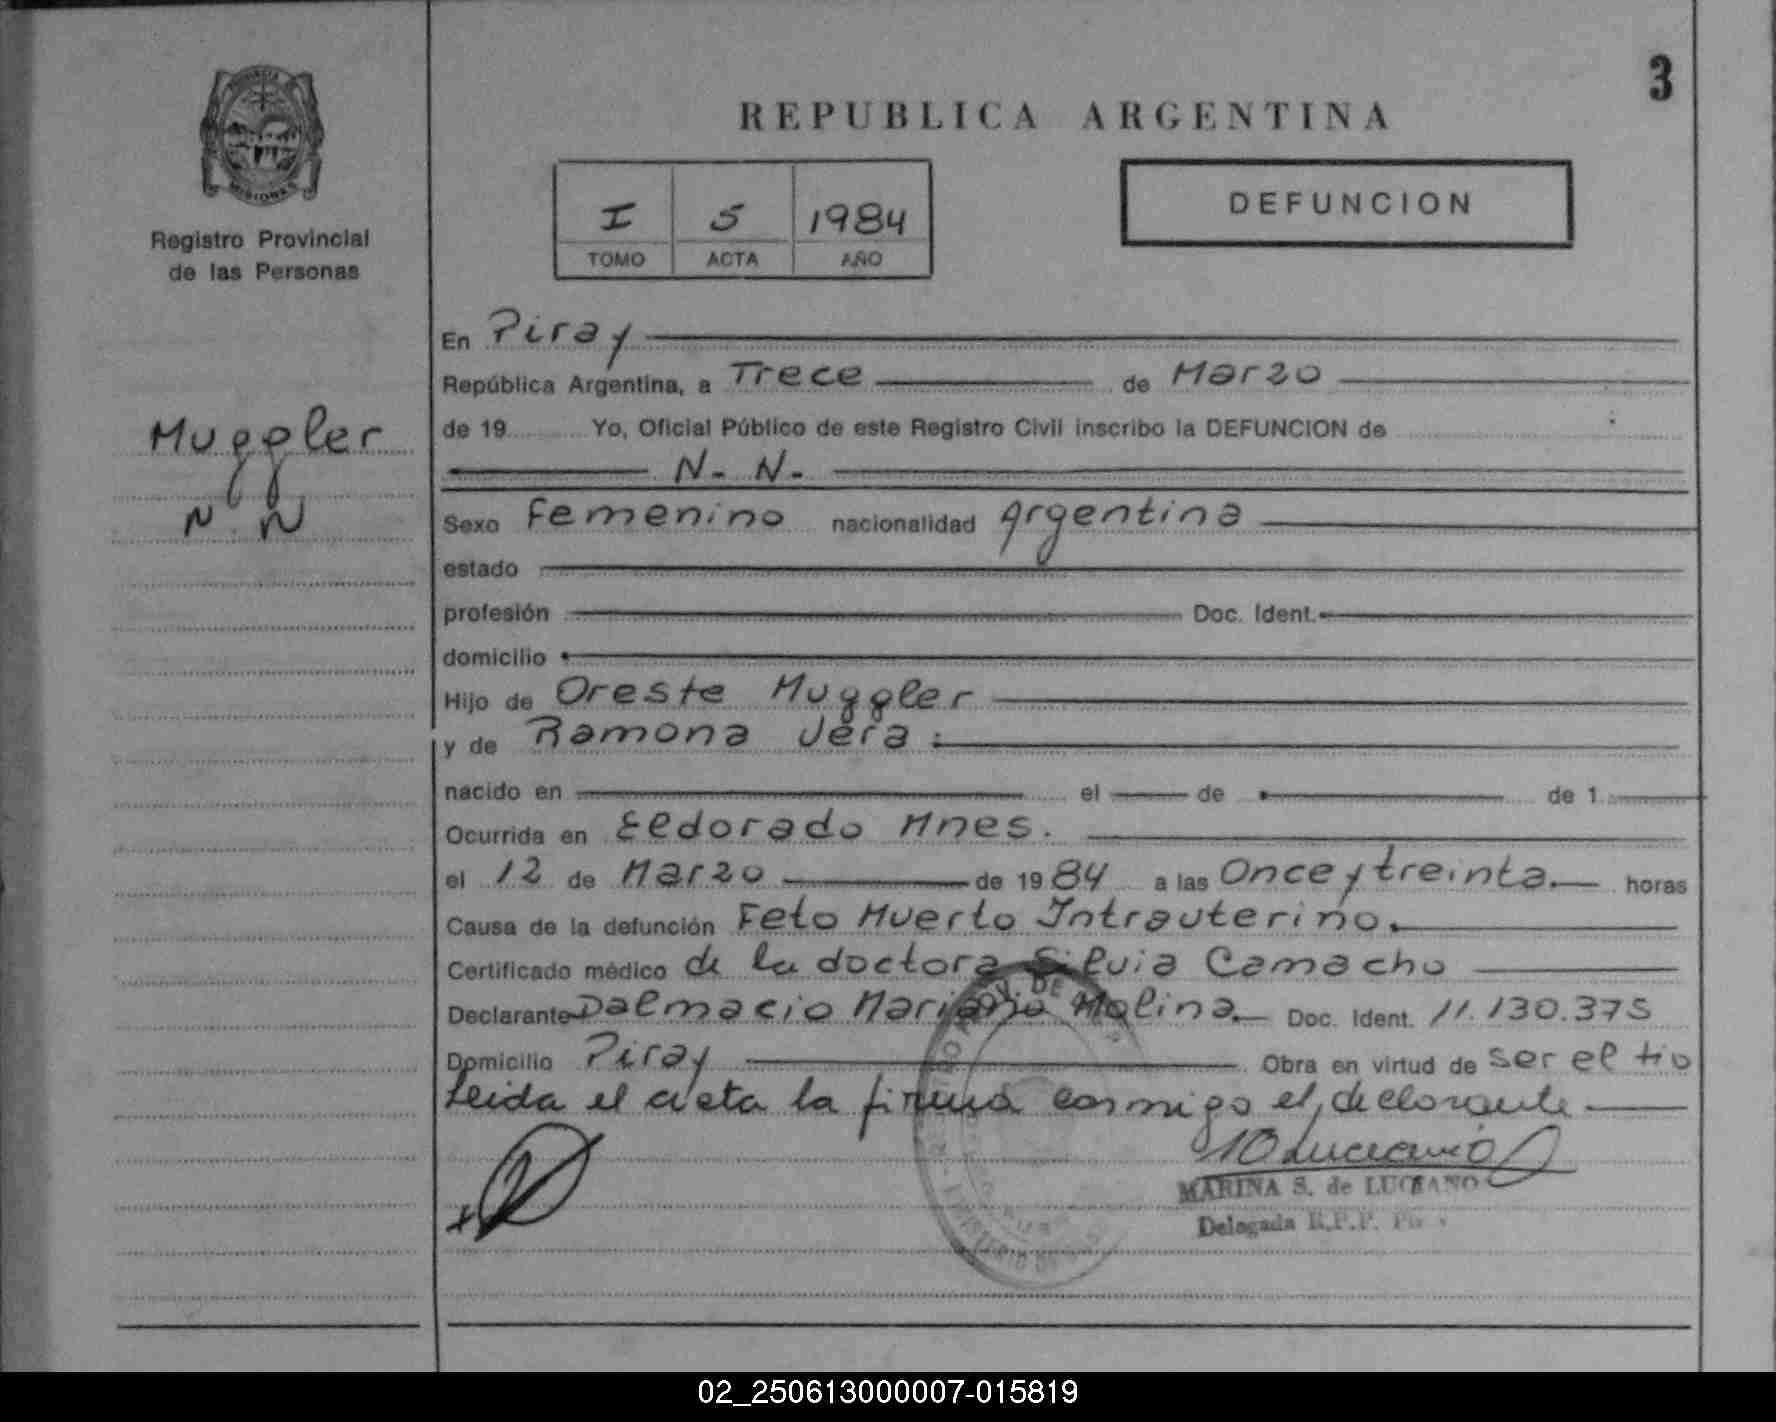 3
REPUBLICA ARGENTINA
PROVINCIA
MISIONES
Registro Provincial
de las Personas
I 5 1984
TOMO ACTA AÑO
DEFUNCION
Muggler
N. N
En Piray
República Argentina, a Trece de Marzo
de 19 Yo, Oficial Público de este Registro Civil inscribo la DEFUNCION de
N- N-
Sexo Femenino nacionalidad Argentina
estado
profesión Doc. Ident.
domicilio
Hijo de Oreste Muggler
y de Ramona Vera
nacido en el de de 1
Ocurrida en Eldorado Mnes.
el 12 de Marzo de 1984 a las Once y treinta. horas
Causa de la defunción Feto Muerto Intrauterino.
Certificado médico de la doctora Silvia Camacho
Declarante Dalmacio Mariano Molina Doc. Ident. 11.130.375
Domicilio Piray Obra en virtud de ser el tio
Leida el acta la firma conmigo el declarante
MARINA S. de LUCIANO
Delegada R.P.P.
02_250613000007-015819